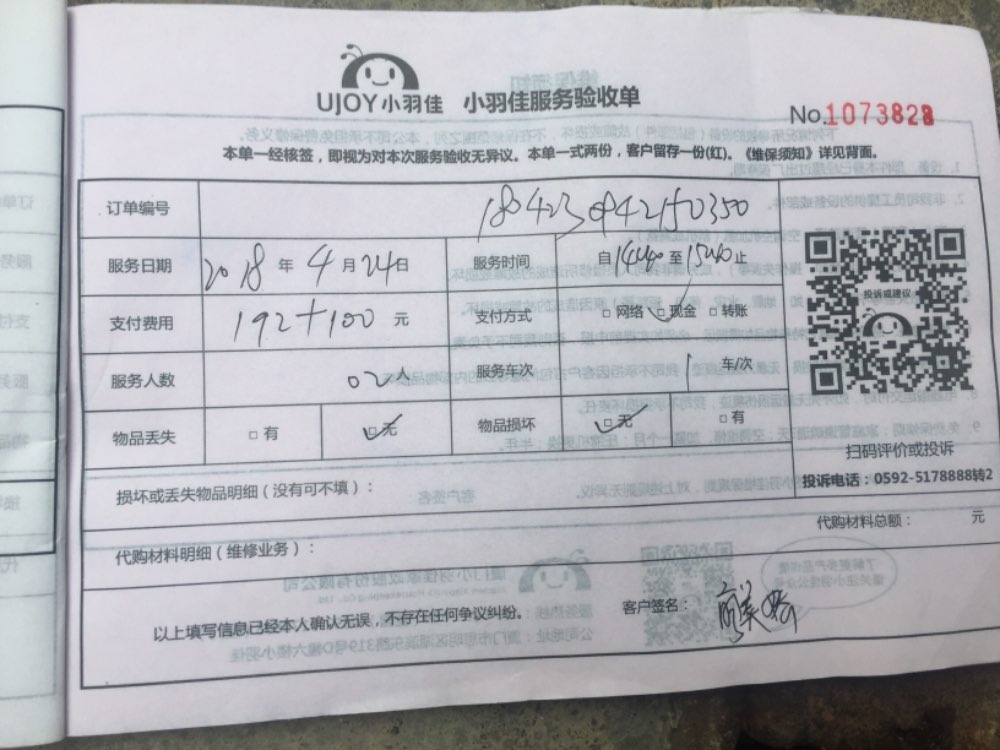 UJOY小羽佳 小羽佳服务验收单
No.1073828
本单一经核签，即视为对本次服务验收无异议。本单一式两份，客户留存一份(红)。《维保须知》详见背面。
订单编号 1804230942150350
服务日期 2018 年 4 月 24 日 服务时间 自14:40至15:40止
支付费用 192+100 元 支付方式 □ 网络 □ 现金 □ 转账
服务人数 02人 服务车次 1 车/次
物品丢失 □ 有 □ 无 物品损坏 □ 无 □ 有
投诉或建议
扫码评价或投诉
投诉电话：0592-5178888转2
损坏或丢失物品明细（没有可不填）：
代购材料总额： 元
代购材料明细（维修业务）：
以上填写信息已经本人确认无误，不存在任何争议纠纷。 客户签名：